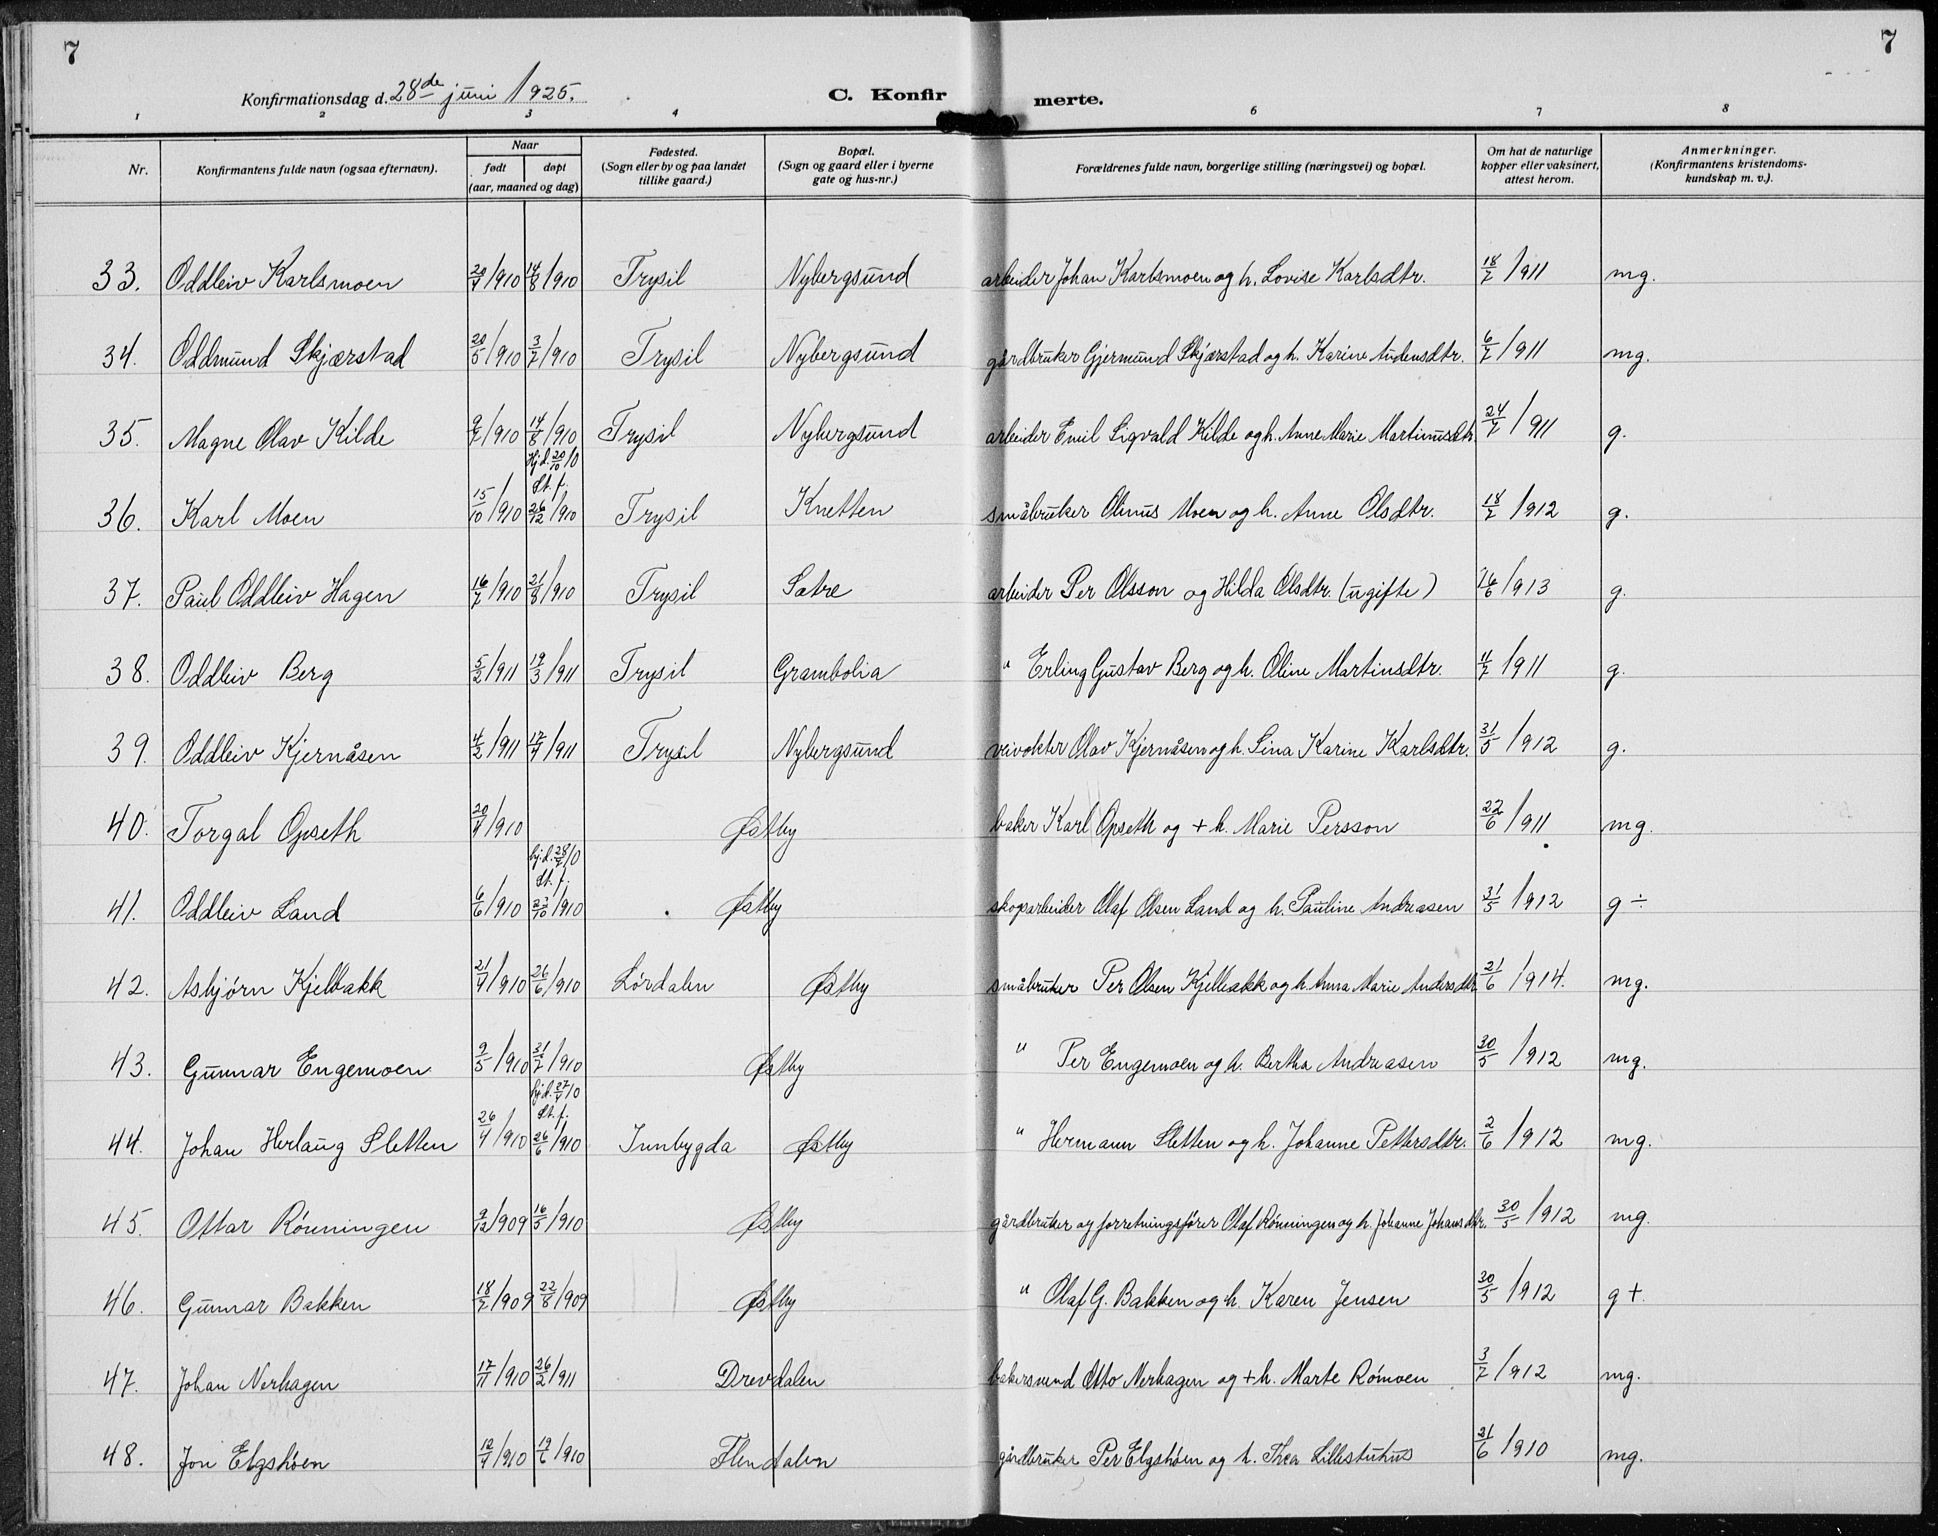 7
7
Konfirmationsdag d. 28de juni 1925.
C. Konfirmerte.
1 2 3 4 6 7 8
Nr. Konfirmantens fulde navn (ogsaa efternavn). Naar født døpt (aar, maaned og dag) Fødested. (Sogn eller by og paa landet tillike gaard.) Bopæl. (Sogn og gaard eller i byerne gate og hus-nr.) Forældrenes fulde navn, borgerlige stilling (næringsvei) og bopæl. Om hat de naturlige kopper eller vaksinert, attest herom. Anmerkninger. (Konfirmantens kristendomskundskap m. v.).
33. Oddleiv Karlsmoen 20/7/910 14/8/910 Trysil Nybergsund arbeider Johan Karlsmoen og h. Lovise Karlsdtr. 18/7/911 mg.
34. Oddmund Skjærstad 20/5/910 3/7/910 Trysil Nybergsund gårdbruker Gjermund Skjærstad og h. Karine Audensdtr. 6/7/911 mg.
35. Magne Olav Kilde 9/7/910 14/8/910 Trysil Nybergsund arbeider Emil Sigvald Kilde og h. Anne Marie Martinusdtr. 24/7/911 g.
36. Karl Moen 15/10/910 Hjd. 20/10/0 St. f. 26/12/910 Trysil Knetten småbruker Olinus Moen og h. Anne Olsdtr. 18/7/912 g.
37. Paul Oddleiv Hagen 16/7/910 21/8/910 Trysil Sætre arbeider Per Olsson og Hilda Olsdtr. (ugifte) 16/6/913 g.
38. Oddleiv Berg 5/2/911 19/3/911 Trysil Grambolia " Erling Gustav Berg og h. Oline Martinsdtr. 4/7/911 g.
39. Oddleiv Kjernåsen 4/2/911 17/4/911 Trysil Nybergsund veivokter Olav Kjernåsen og h. Lina Karine Karlsdtr. 31/5/912 g.
40. Torgal Opseth 20/4/910 Østby baker Karl Opseth og + h. Marie Persson 22/6/911 mg.
41. Oddleiv Land 6/6/910 hjd. 28/7/0 St. f. 23/10/910 Østby skogarbeider Olaf Olsen Land og h. Pauline Andreasen 31/5/912 g ÷
42. Asbjørn Kjelbakk 21/4/910 26/6/910 Lørdalen Østby småbruker Per Olsen Kjelbakk og h. Anna Marie Andersdtr. 21/6/914. mg.
43. Gunnar Engemoen 9/5/910 31/7/910 Østby " Per Engemoen og h. Bertha Andreasen 30/5/912 mg.
44. Johan Herlaug Sletten 26/4/910 hjd. 27/4/0 St. f. 26/6/910 Innbygda Østby " Hermann Sletten og h. Johanne Pettersdtr. 2/6/912 mg.
45. Ottar Rønningen 9/12/909 16/5/910 Østby gårdbruker og forretningsfører Olaf Rønningen og h. Johanne Johansdtr. 30/5/912 mg.
46. Gunnar Bakken 18/7/909 22/8/909 Østby " Olaf G. Bakken og h. Karen Jensen 30/5/912 g +.
47. Johan Nerhagen 17/11/910 26/2/911 Drevdalen bakersvend Otto Nerhagen og + h. Marte Rømoen 3/7/912 mg.
48. Jon Elgshøen 12/4/910 19/6/910 Flendalen gårdbruker Per Elgshøen og h. Thea Lillestuhus 21/6/910 mg.